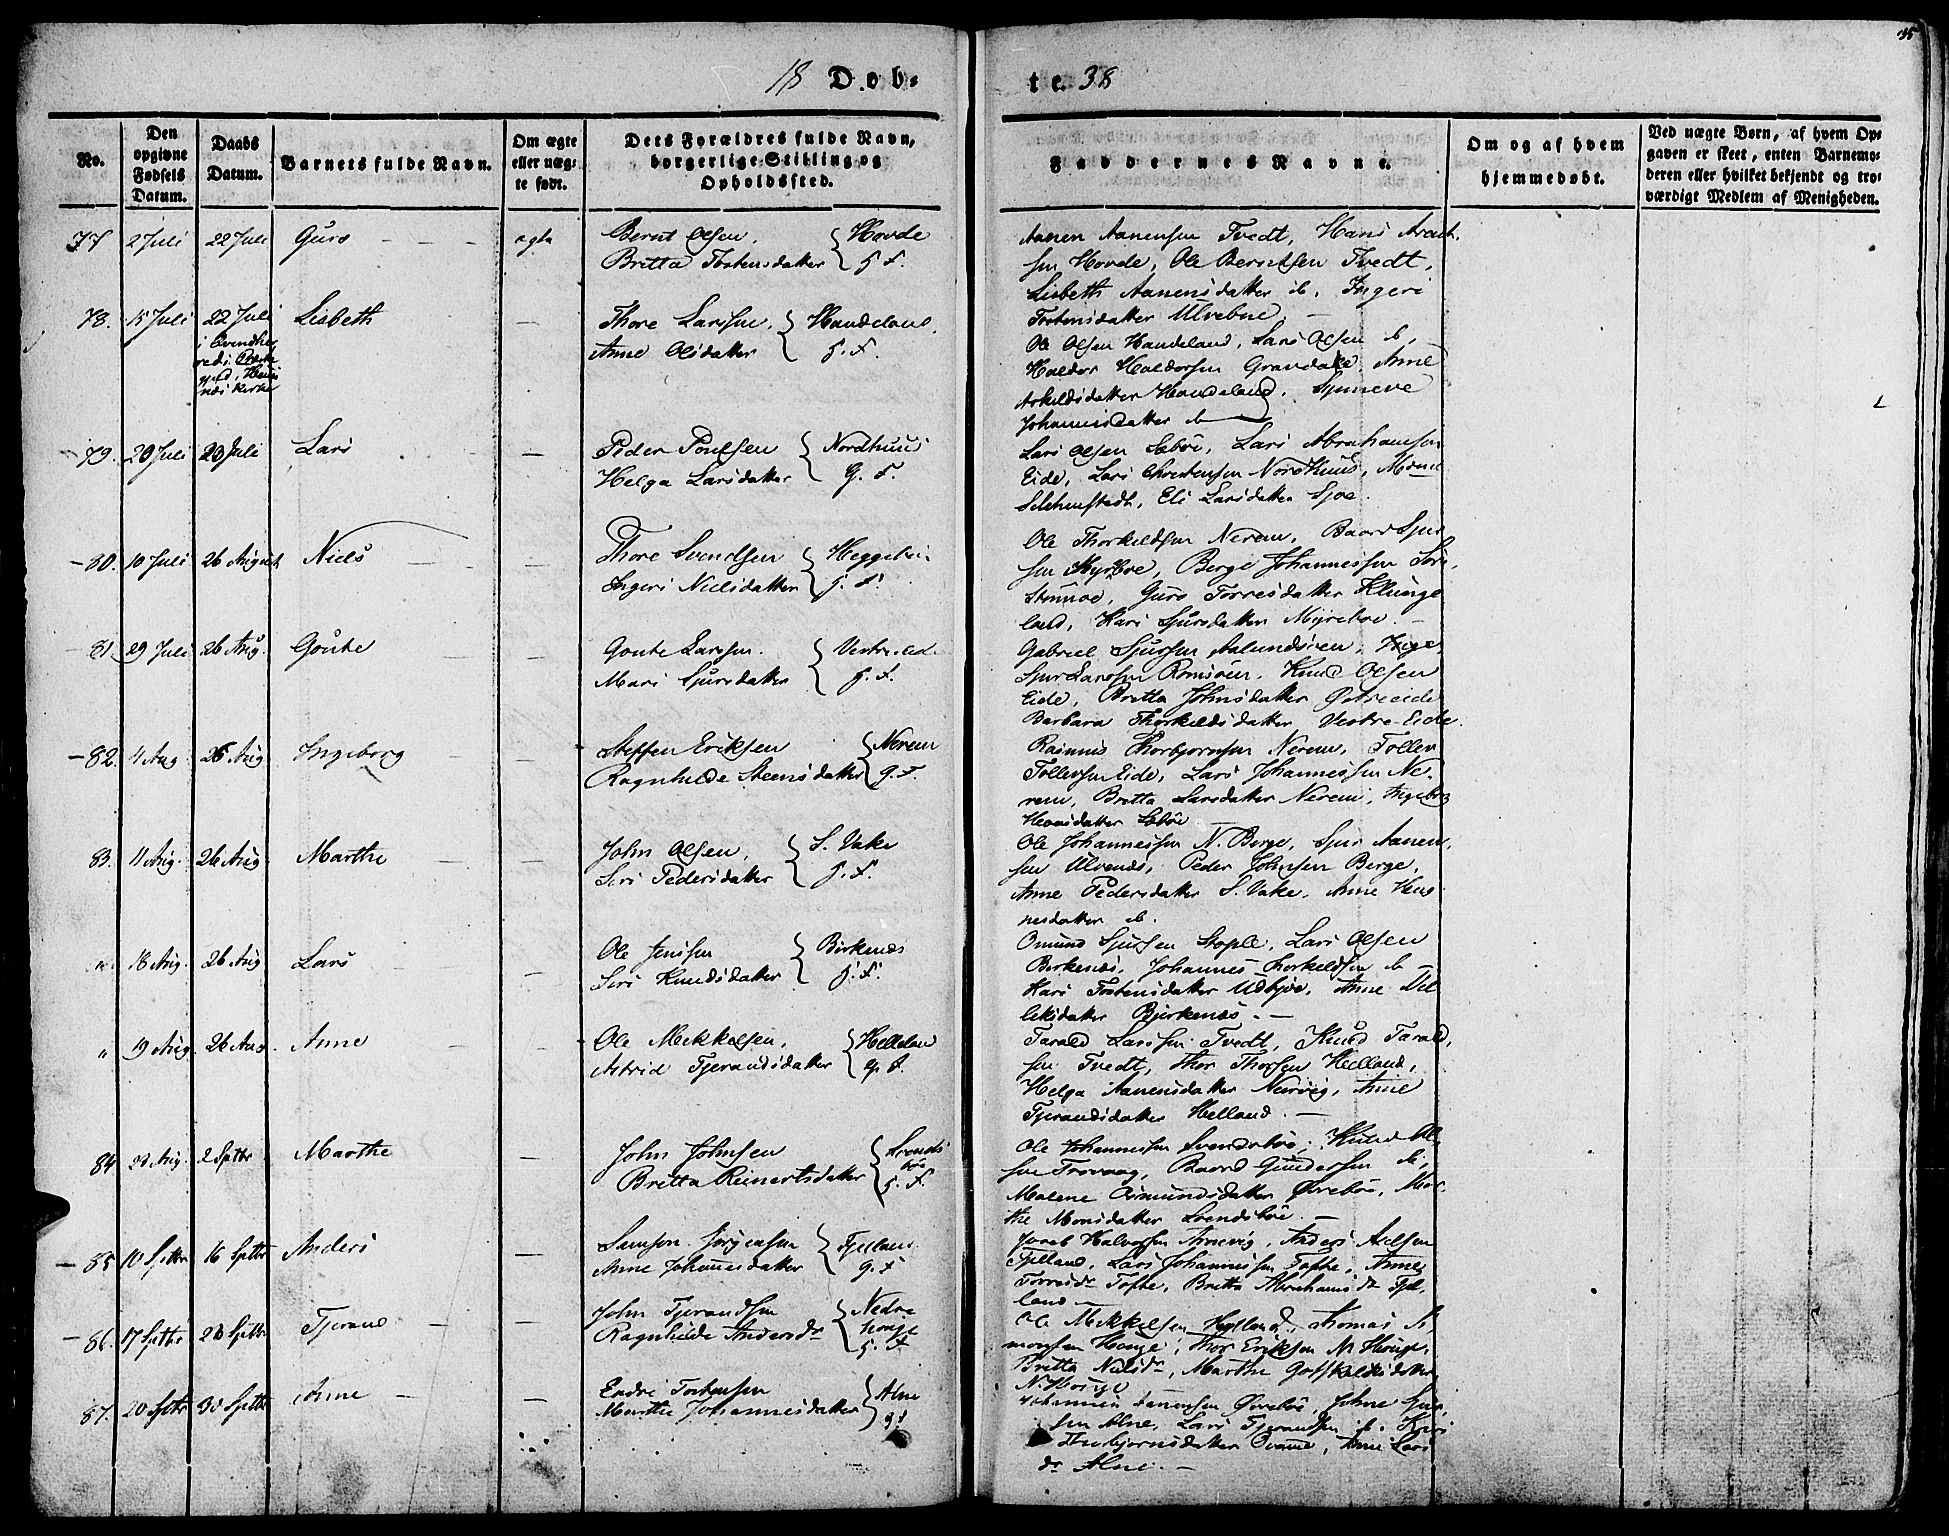 45
18 Døb-
te. 38
No.
Den opgivne Fødsels Datum.
Daabs Datum.
Barnets fulde Navn.
Om ægte eller uægte født.
Dets Forældres fulde Navn, borgerlige Stilling og Opholdssted.
Faddernes Navne.
Om og af hvem hjemmedøbt.
Ved uægte Børn, af hvem Opgaven er skeet, enten Barnemoderen eller hvilket bekjendt og troværdigt Medlem af Menigheden.
77 2 Juli 22 Juli Guro ægte Bernt Olsen, Hovde
Britta Tostensdatter g. F.
Aanen Aanensen Tvedt, Hans
sen Hovde, Ole Berntsen Tvedt,
Lisbeth Aanensdatter ib. Ingeri
Tostensdatter Ulvebne. —
78. 15 Juli 22 Juli Lisbeth — Thore Larssen, Handeland
Anne Olsdatter g. F.
Ole Olsen Handeland, Lars Olsen ib,
Haldor Haldorsen Grandale, Anne
Askildsdatter Handeland,
Johannisdatter ib
79. 29 Juli 29 Juli Lars — Peder Poulsen Nordhuus
Helga Larsdatter g. F.
Lars Olsen Sæbøe, Lars Abrahamsen
Eide, Lars Christensen Nordhuus,
Eli Larsdatter
80. 10 Juli 26 August Niels — Thore Svendsen
Ingeri Nielsdatter g. F.
Ole Thorkeldsen Nerem, Baard Sjur-
sen Børge Johannessen
Guro Torresdatter Klunge
land, Kari Sjursdatter Myreboe. —
81. 29 Juli 26 Aug. Goute — Goute Larssen. Vestre eide
Mari Sjursdatter g. F.
Gabriel Sjursen
Sjur Larssen Romsøen, Knud Olsen
Eide, Britta Johnsdatter Østreeide
Barbara Thorkildsdatter Vestre Eide.
82. 4 Aug 26 Aug Ingeborg — Steffen Eriksen Nerem
Ragnhilde Steensdatter g. F.
Rasmus Thorbjørnsen Nerem, Tollev
Tollevsen Eide, Lars Johannessen Ne-
rem, Britta Larsdatter Nerem, Ingeborg
Hansdatter Sæbøe
83. 11 Aug. 26 Aug Marthe — John Olsen, S. Vake
Siri Pedersdatter g. F.
Ole Johannessen N. Berge, Sjur Aanen-
sen Ulvenæs, Peder Johnsen Berge,
Anne Pedersdatter S. Vake, Anne Han-
nesdatter ib.
" 18 Aug. 26 Aug Lars — Ole Jenssen Birkenæs
Siri Knudsdatter g. F.
Omund Sjursen Stople, Lars Olsen
Birkenæs, Johannes Torkeldsen ib —
Kari Tostensdatter Udbjøe, Anne Det
lefsdatter Bjerkenæs. —
" 19 Aug. 26 Aug. Anne — Ole Mekkelsen, Helland
Astrid Tjerandsdatter g. F.
Tarald Larssen Tvedt, Knud Tarald-
sen Tvedt, Thor Thorsen Helland,
Helga Aanensdatter Nervig, Anne
Tjerandsdatter Helland. —
84 23 Aug. 2 Septbr Marthe — John Johnsen Svends
bøe
Britta Reinertsdatter g. F.
Ole Johannessen Svendsbøe, Knud Ol-
sen Trovaag, Baard Gundersen ib,
Malene Asmundsdatter Øvrebøe, Mar-
the Monsdatter Svendsbøe. —
85 10 Septbr 16 Septbr Anders — Samson Jørgensen Fjelland
Anne Johannesdatter g. F.
Jacob Halvorsen Arnevig, Anders
Fjelland, Lars Johannessen Tofte, Anne
Torresdr Tofte, Britta Abrahamsdr Fjel-
land
86. 17 Septbr 23 Septbr Tjerand — John Tjerandsen Nedre
Houge
Ragnhilde Andersdr g. F.
Ole Mekkelsen Helland, Thomas Si-
monsen Houge, Thor Eriksen N. Houge,
Britta Nielsdr, Marthe Gotskalksdatter
N. Houge
87. 20 Septbr 30 Septbr Anne — Endre Tostensen Alne
Marthe Johannesdatter g. F.
Øvrebøe, Johne Sjur-
sen Alne, Lars Tjerandsen ib. Kari
Thorbjørnsdatter Anne Lars
dr Alne. —